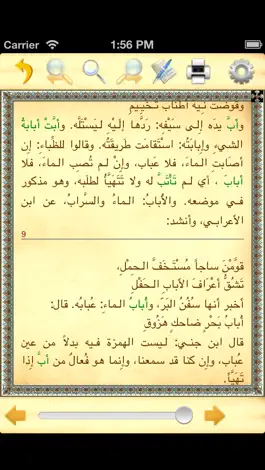 Carrier 1:56 PM
وقوضت نِيه أطناب تخييم
وأبَّ يدَه إلى سَيْفِه: رَدَّها إلَيْهِ ليَسْتَلَّه. وأبَّتْ أبابةُ
الشيءِ وإبابَتُه: اسْتَقامَت طَريقَتُه. وقالوا للظِّباءِ: إن
أصابَتِ الماءَ، فلا عَباب، وإنْ لم تُصِبِ الماءَ، فلا
أبابَ ، أي لم تَأْتَبَّ له ولا تَتَهَيَّأ لطلَبه، وهو مذكور
في موضعه. والأبابُ: الماءُ والسَّرابُ، عن ابن
الأعرابي، وأنشد:
9
قَوَّمْنَ ساجاً مُسْتَخَفَّ الحِمْلِ،
تَشُقُّ أعْرافَ الأبابِ الحَفْلِ
أخبر أنها سفُنُ البَرِّ، وأُبابُ الماءِ: عُبابُه. قال:
أُبابُ بَحْرٍ ضاحكٍ هَزُوقِ
قال ابن جني: ليست الهمزة فيه بدلاً من عين
عُباب، وإن كنا قد سمعنا، وإنما هو فُعالٌ من أبَّ إذا
تَهَيَّأ.